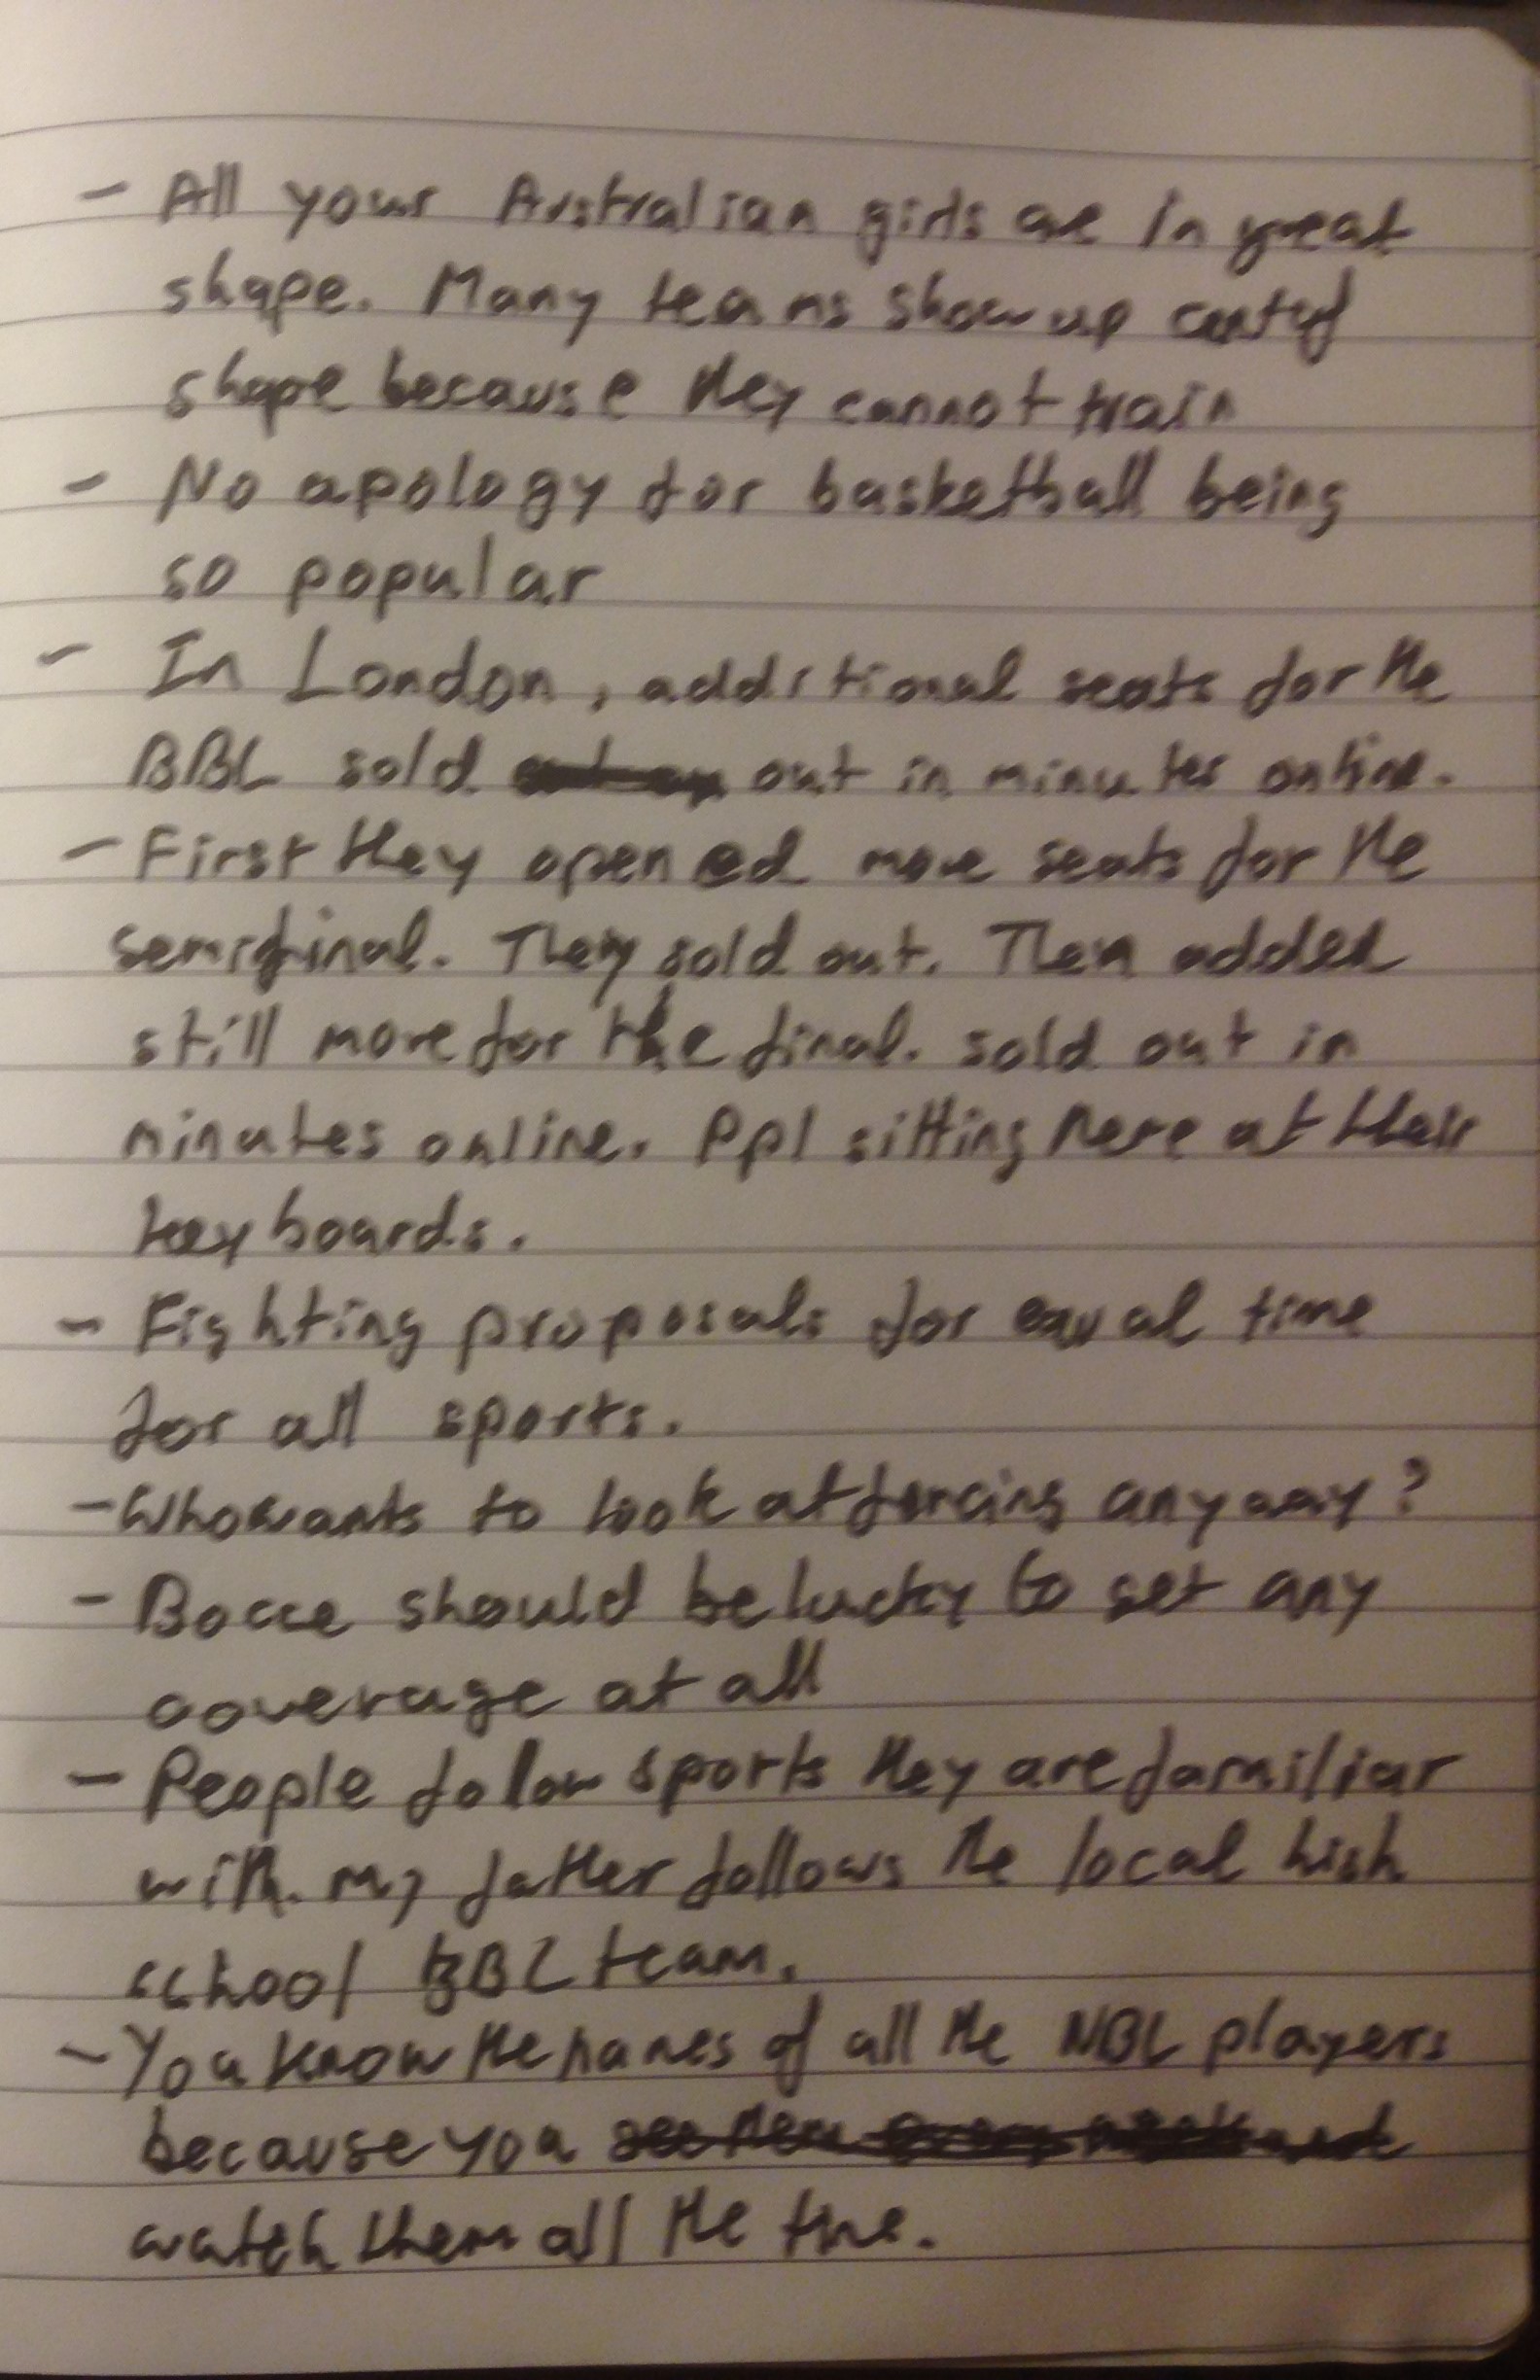 - All your Australian girls are in great
shape. Many teams show up out of
shape because they cannot train
- No apology for basketball being
so popular
- In London, additional seats for the
BBL sold out in minutes online.
- First they opened more seats for the
semifinal. They sold out. Then added
still more for the final. sold out in
minutes online. Ppl sitting here at their
keyboards.
- Fighting proposals for equal time
for all sports.
- Who wants to look at fencing anyway?
- Bocce should be lucky to get any
coverage at all
- People follow sports they are familiar
with. My father follows the local high
school BBL team.
- You know the names of all the NBL players
because you
watch them all the time.